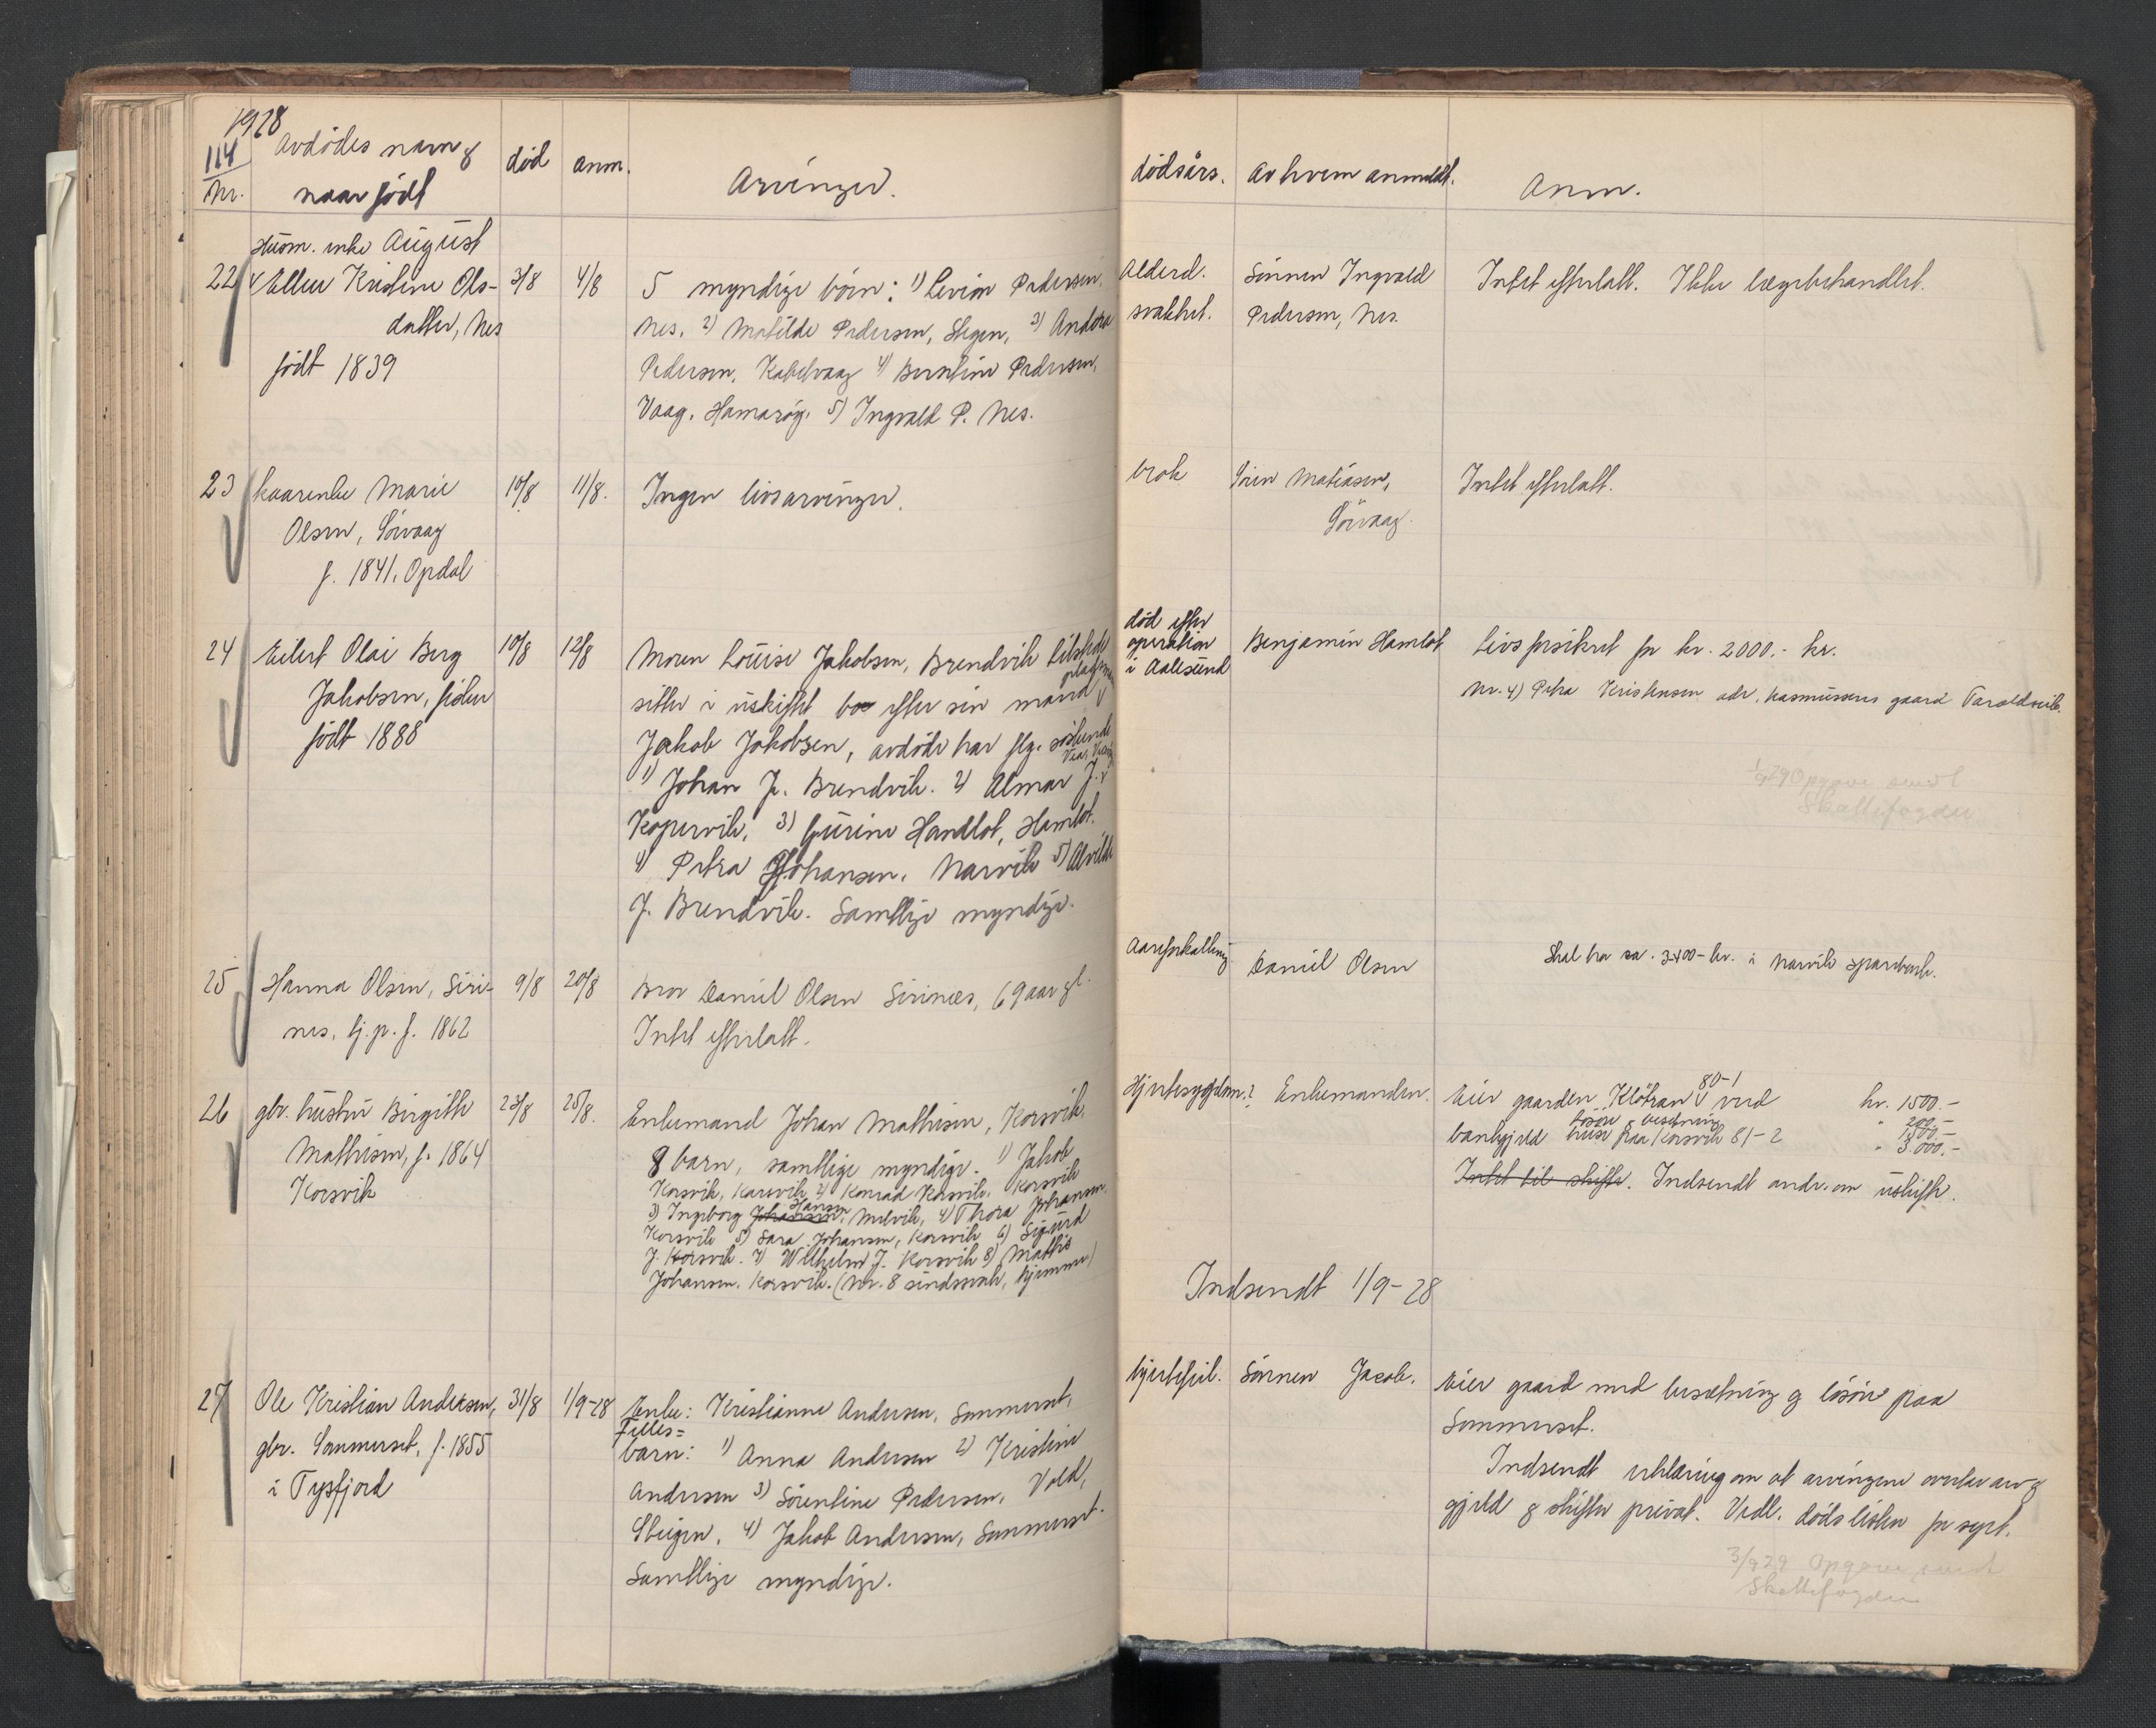 1928
114
Nr.
Avdødes navn &
naar født
død
anm.
Arvinger.
Husm. enke August
22
Ellen Kristine Ols-
datter, Nes
født 1839
3/8
4/8
5 myndige børn: 1) Levion Pedersen,
Nes, 2) Matilde Pedersen, Stegen, 3) Andora
Pedersen, Kabelvaag 4) Berntine Pedersen,
Vaag, Hamarøy. 5) Ingvald P. Nes.
23
Kaarenhe Marie
Olsen, Sørvaag
f. 1841, Opdal
10/8
11/8.
Ingen livsarvinger.
24
Eilert Olai Berg
Jakobsen, fisker
født 1888
10/8
12/8
Moren Louise Jakobsen, Brendvik
sitter i uskiftet bo efter sin mand
Jakob Jakobsen, avdøde har flg. søskende
1) Johan J. Brendvik. 2) Almar J.
Kopervik, 3) Gurine Hamlot, Hamlot.
4) Petra Johansen, Narvik 5) Alvilde
J. Brendvik. Samtlige myndige.
25
Hanna Olsen, Siri-
nes, tj.p. f. 1862
9/8
20/8
Bror Daniel Olsen Sirines, 69 aar gl.
Intet efterlatt.
26
gbr. hustru Birgitte
Mathisen, f. 1864
Korsvik
23/8
25/8.
Enkemand Johan Mathisen, Korsvik.
8 barn, samtlige myndige. 1) Jakob
Korsvik, Karsvik 2) Konrad Korsvik, Korsvik
3) Ingeborg Johansen Hansen, Melvik, 4) Thora Johansen
Korsvik 5) Sara Johansen, Korsvik 6) Sigurd
J. Korsvik. 7) Wilhelm J. Korsvik 8) Mathis
Johansen, Korsvik. (Nr. 8 sindssvak, hjemme)
27
Ole Kristian Andersen,
gbr. Sommerset, f. 1855
i Tysfjord
31/8
1/9-28
Enke: Kristianne Andersen, Sommerset,
Felles=
barn: 1) Anna Andersen 2) Kristine
Andersen 3) Sørentine Pedersen, Vold,
Steigen, 4) Jakob Andersen, Sommerset.
Samtlige myndige.
dødsårs.
Av hvem anmeldt.
Anm.
Alderd.
svakhet.
Sønnen Ingvald
Pedersen, Nes.
Intet efterlatt. Ikke lægebehandlet.
brok
Søren Matiasen,
Sørvaag.
Intet efterlatt.
død efter
operation
i Aalesund
Benjamin Hamlot
Livsforsikret for kr. 2000.- kr.
Nr. 4) Petra Kristensen adr. Rasmussens gaard Taraldsvik.
Opgave sendt
Skattefogden
Aareforkalkning
Daniel Olsen
Skal ha ca. 3400- kr. i Narvik sparebank.
Hjertesygdom?
Enkemanden.
Eier gaarden Klötran 80-1 verd kr. 1500.-
løsøre & besetning " 200.-
bankgjeld huse paa Korsvik 81-2 1500.-
" 3.000.-
Intet til skifte. Indsendt andr. om uskifte.
Indsendt 1/9-28
hjertefeil.
Sønnen Jacob.
Eier gaard med besætning og løsøre paa
Sommerset.
Indsendt erklæring om at arvingene overtar arv &
gjeld & skifter privat. Vedl. dødslisten for sept.
Opgave sendt
Skattefogden